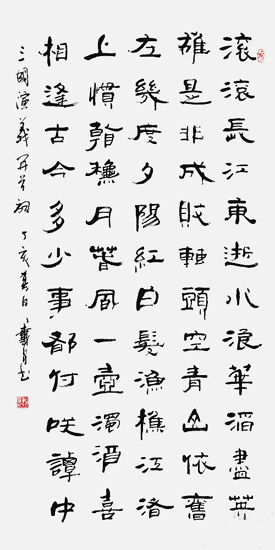 滾滾長江東逝水浪華淘盡英
雄是非成敗轉頭空青山依舊
在幾度夕陽紅白髮漁樵江渚
上慣看穐月萅風一壺濁酒喜
相逢古今多少事都付咲譚中
三國演義开首詞 丁亥